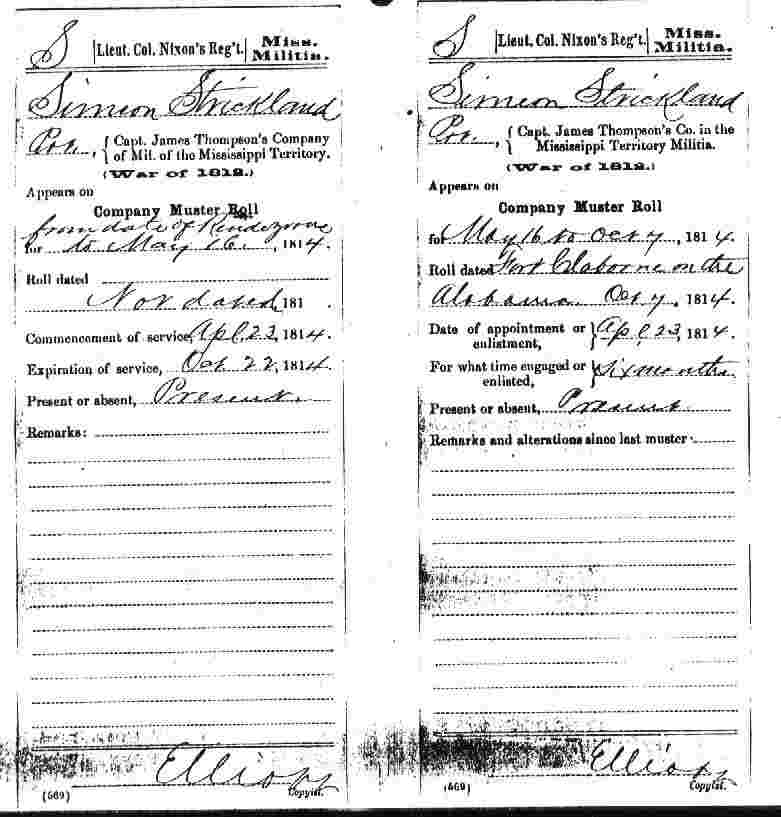 S | Lieut. Col. Nixon's Reg't. | Miss. Militia.
Simeon Strickland
Pvt., { Capt. James Thompson's Company
of Mil. of the Mississippi Territory.
(War of 1812.)
Appears on
Company Muster Roll
from date of Rendezvous
for to May 16, 1814.
Roll dated
Not dated, 181 .
Commencement of service, Apl. 23, 1814.
Expiration of service, Oct 22, 1814.
Present or absent, Present.
Remarks:
Elliott
(569) Copyist.
S | Lieut. Col. Nixon's Reg't. | Miss. Militia.
Simeon Strickland
Pvt., { Capt. James Thompson's Co. in the
Mississippi Territory Militia.
(War of 1812.)
Appears on
Company Muster Roll
for May 16 to Oct 7, 1814.
Roll dated Fort Claborne on the
Alabama Oct 7, 1814.
Date of appointment or } Apl. 23, 1814.
enlistment,
For what time engaged or } Six months
enlisted,
Present or absent, Present
Remarks and alterations since last muster
Elliott
(569) Copyist.